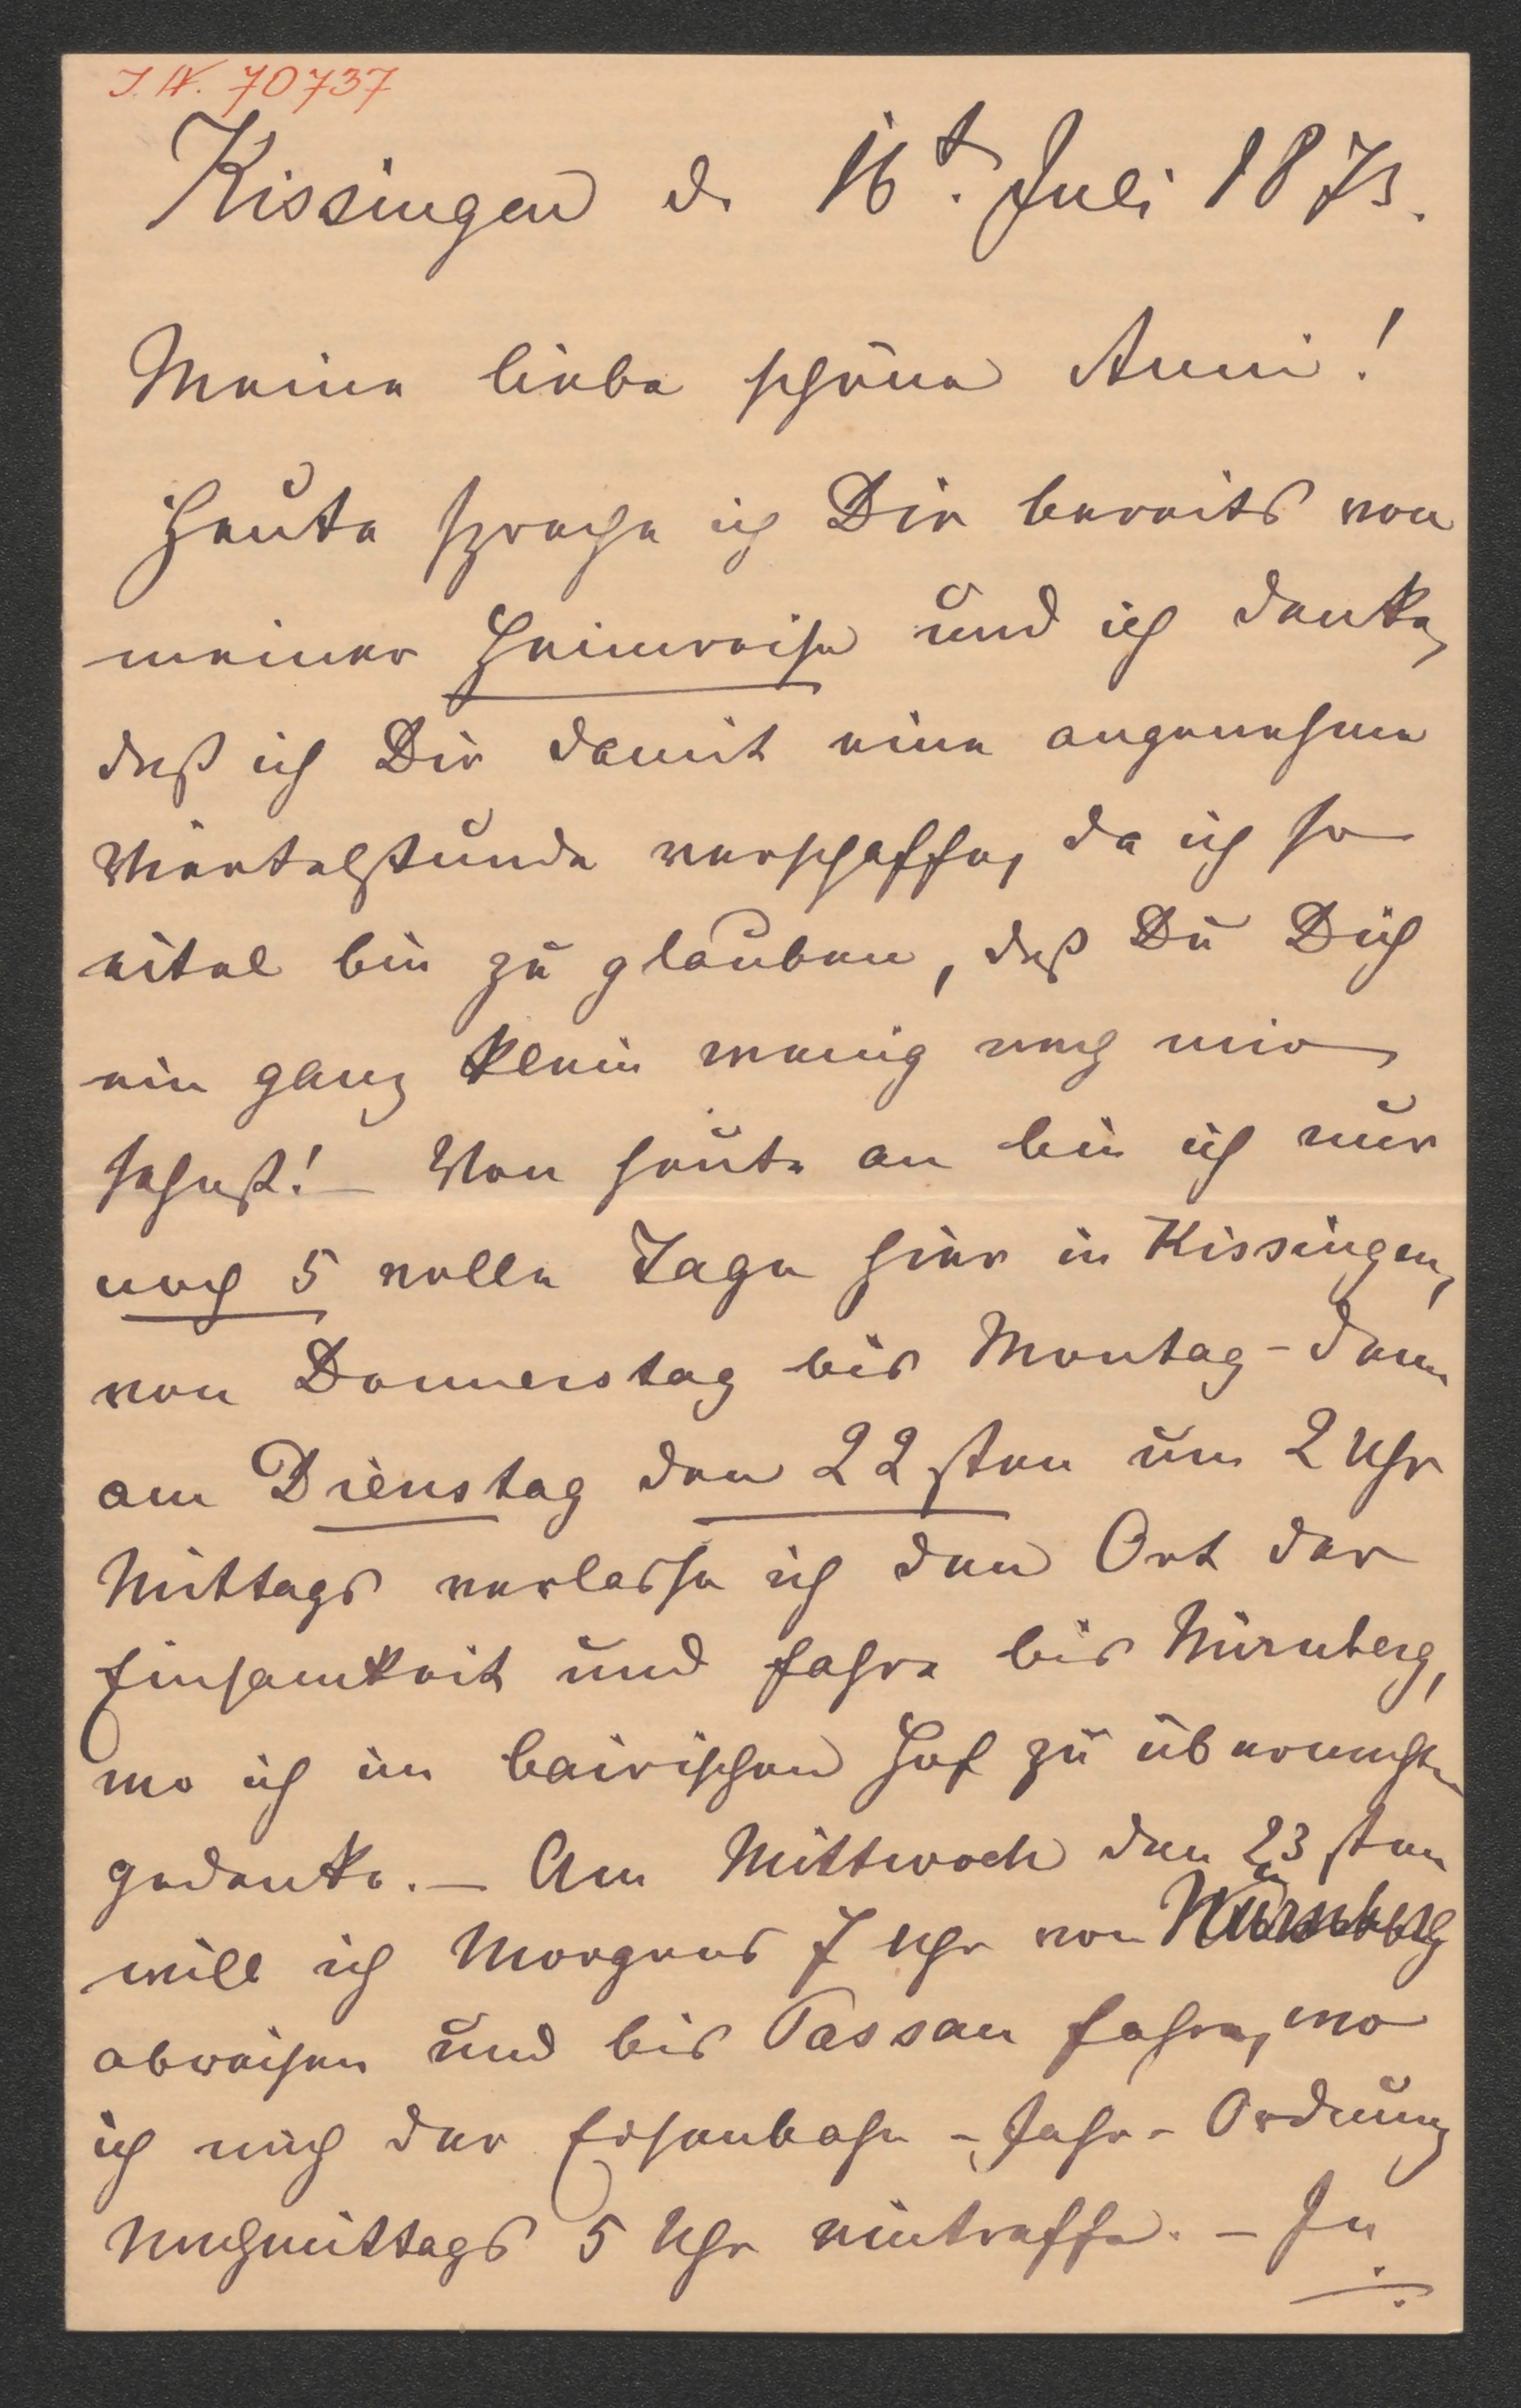 J.N. 70737
Kissingen d. 16t. Juli 1873.
Meine liebe schöne Anni!
Heute spreche ich Dir bereits von
meiner Heimreise und ich denke,
daß ich Dir damit eine angenehme
Viertelstunde verschaffe, da ich so
eitel bin zu glauben, daß Du Dich
ein ganz klein wenig nach mir
sehnst! – Von heute an bin ich nur
noch 5 volle Tage hier in Kissingen,
von Donnerstag bis Montag – dann
am Dienstag den 22sten um 2 Uhr
Mittags verlasse ich den Ort der
Einsamkeit und fahre bis Nürnberg,
wo ich im bairischen Hof zu übernachten
gedenke. – Am Mittwoch den 23sten
will ich Morgens 7 Uhr von Nürnberg
abreisen und bis Passau fahre, wo
ich nach der Eisenbahn-Fahr-Ordnung
Nachmittags 5 Uhr eintreffe. – In